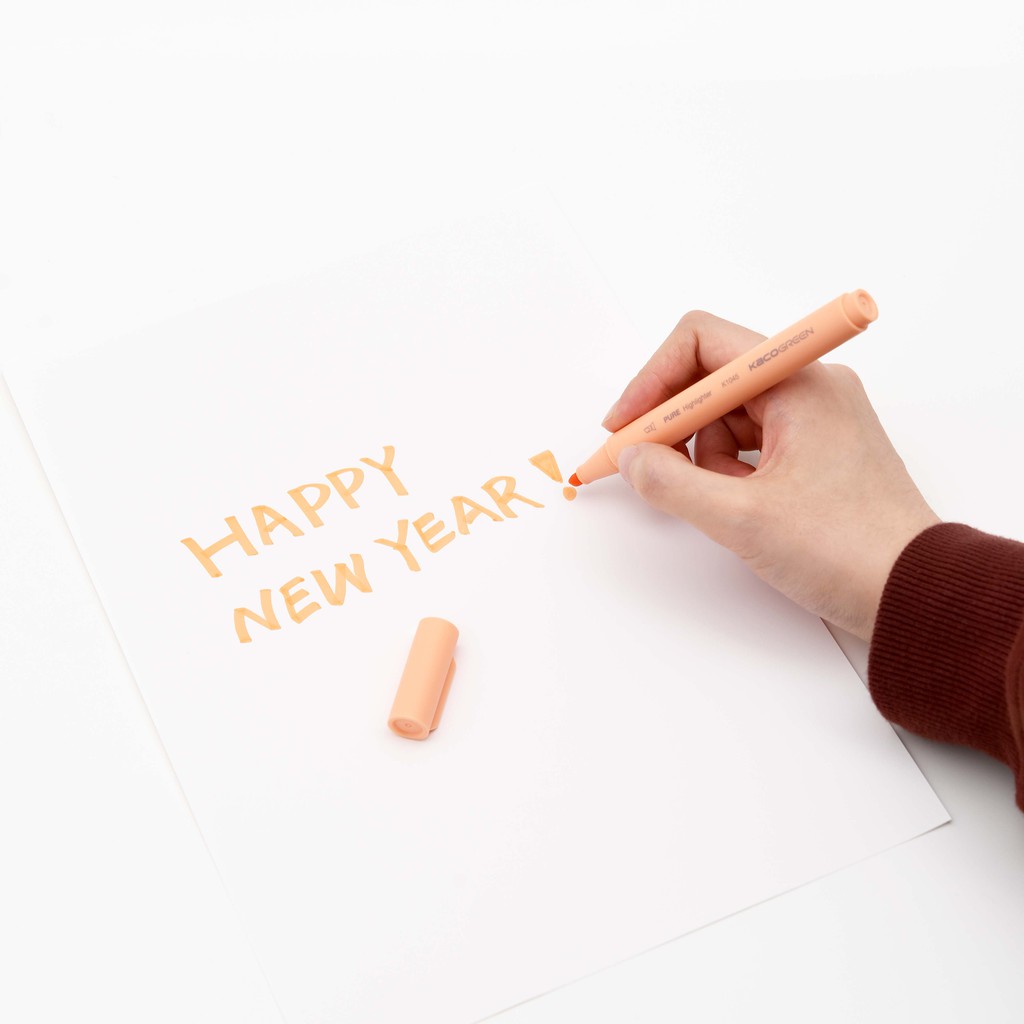 HAPPY
NEW YEAR!
PURE Highlighter K1048 KACOGREEN